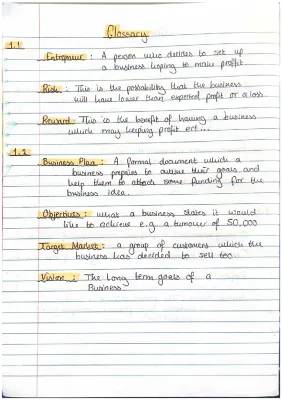 Glossary
1.1
Entrepreneur : A person who decides to set up
a business hoping to make profit
Risk : This is the possibility that the business
will have lower than expected profit or a loss.
Reward This is the benefit of having a business
which may keeping profit ect...
1.2
Business Plan : A formal document which a
business prepares to outline their goals and
help them to attract some funding for the
business idea.
Objectives : what a business states it would
like to achieve e.g a turnover of 50,000
Target Market : a group of customers which the
business has decided to sell too.
Vision : The long term goals of a
Business